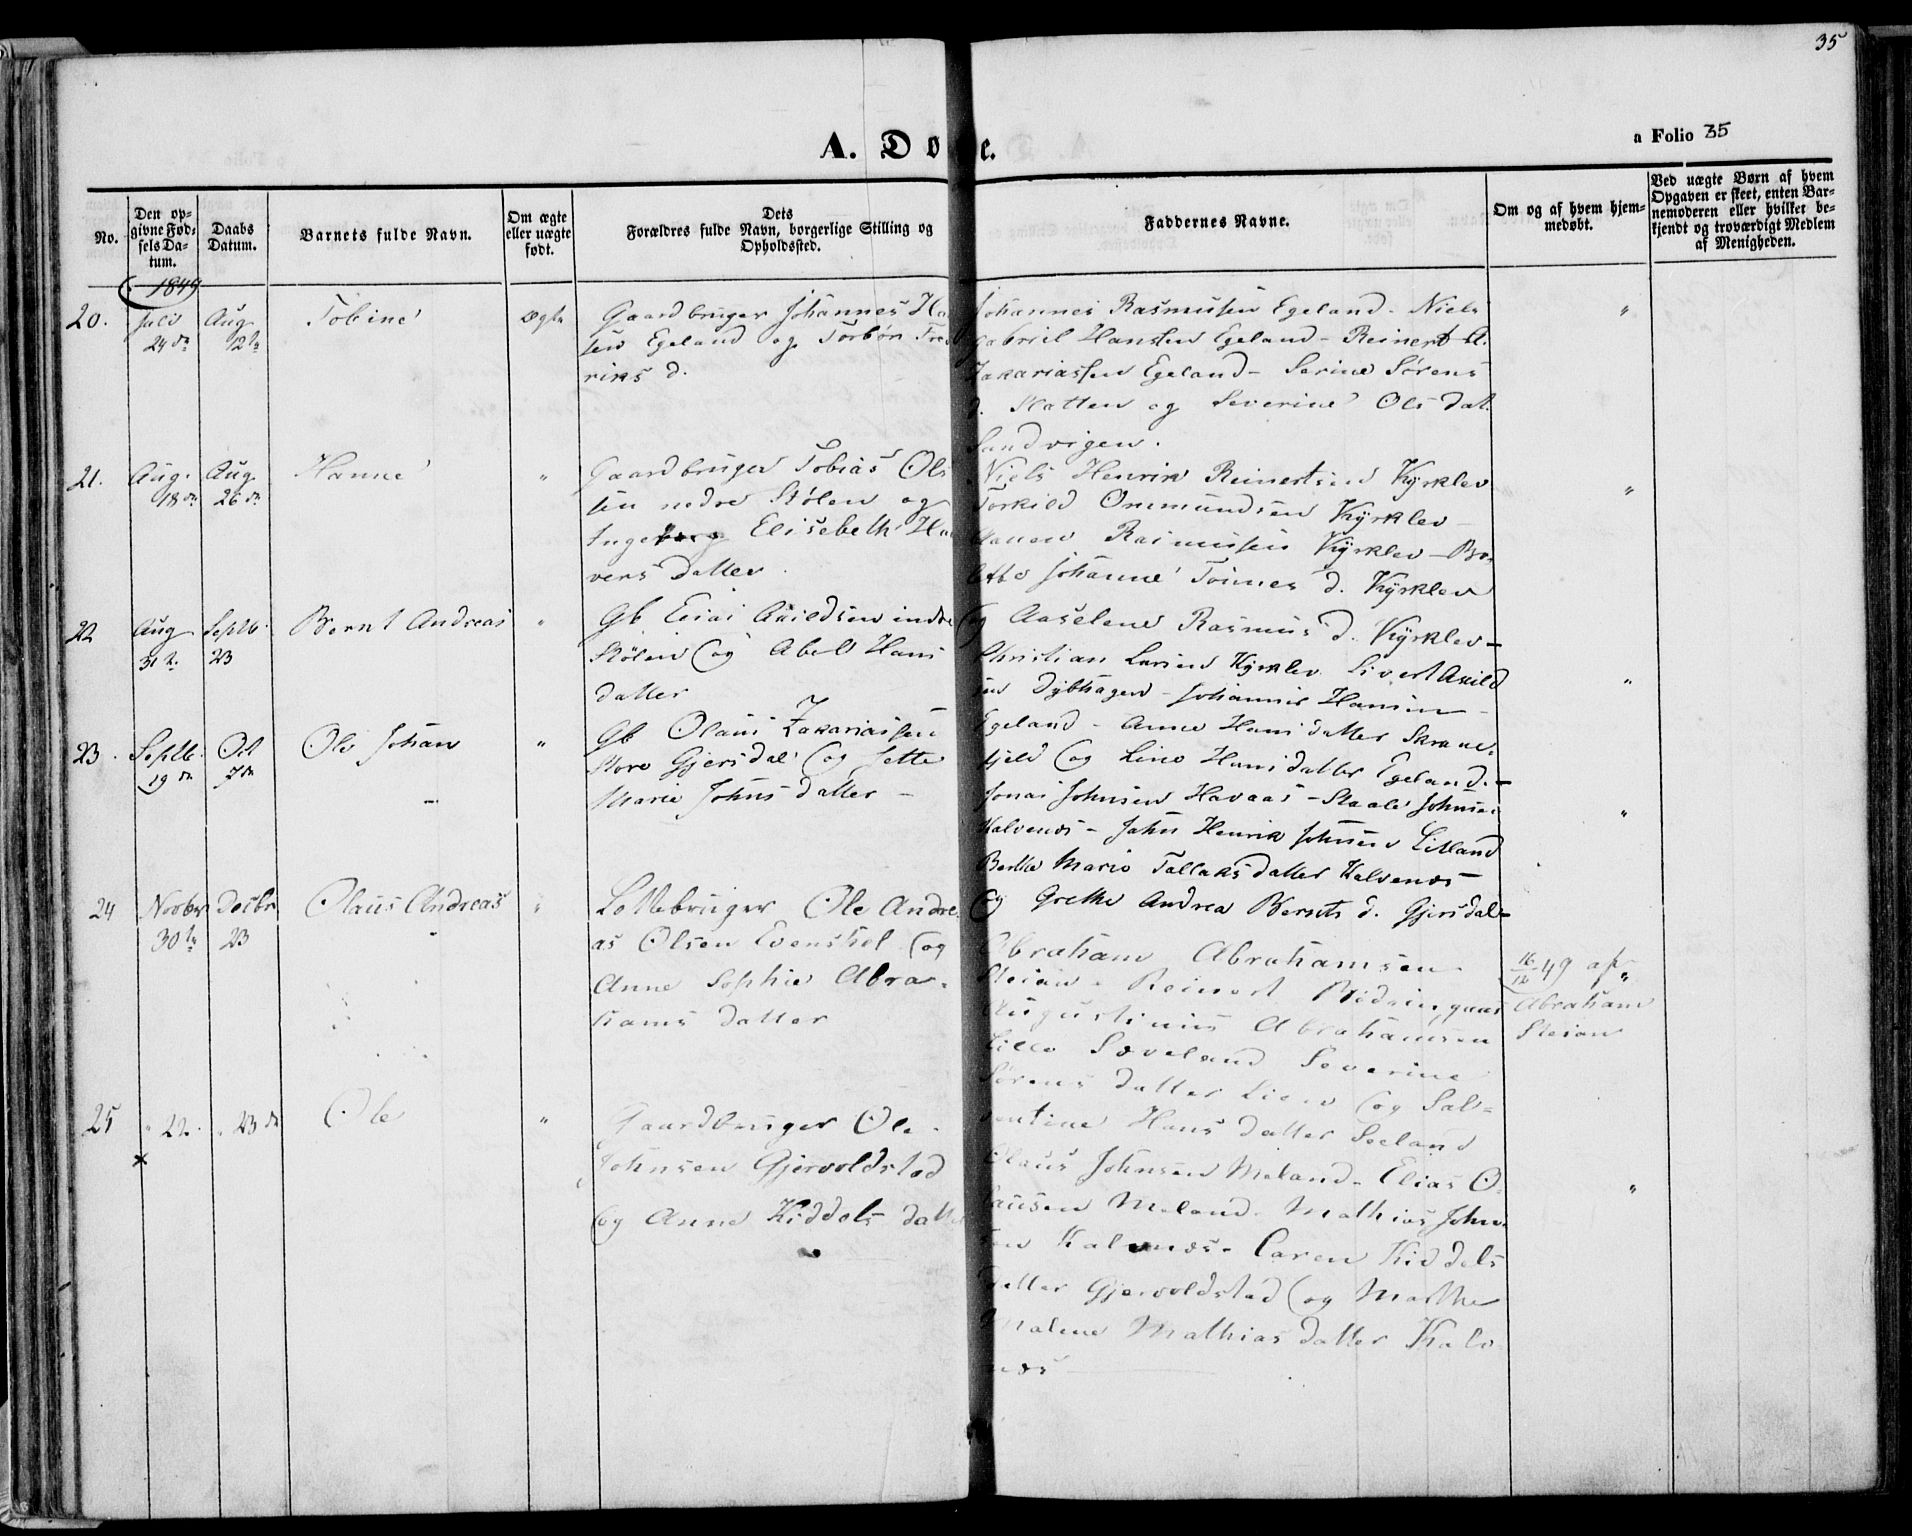 35
A. Dø e.
a Folio 35
No.
Den op-
givne Fød-
sels Da-
tum.
Daabs
Datum.
Barnets fulde Navn.
Om ægte
eller uægte
født.
Dets
Forældres fulde Navn, borgerlige Stilling og
Opholdssted.
Faddernes Navne.
Om og af hvem hjem-
medøbt.
Ved uægte Børn af hvem
Opgaven er skeet, enten Bar-
nemoderen eller hvilket be-
kjendt og troværdigt Medlem
af Menigheden.
1849
20.
Juli
24 de
Aug
12 te
Tobine
ægte
Gaardbruger Johannes Han
sen Egeland og Torbør Fred
riks d.
Johannes Rasmusen Egeland - Niels
Gabriel Hansen Egeland - Reinert A.
Zakariassen Egeland - Serine Sørens
d. Slatten og Severine Ols dat.
Sandvigen.
"
21.
Aug.
18 de
Aug
26 de
Hanne
"
Gaardbruger Tobias Ols
sen nedre Stølen og
Ingeborg Elisebeth Hal
vers datter.
Niels Henrik Reinertsen Kyrklev
Torkild Ommundsen Kyrklev -
Rasmusen Kyrklev - Bo-
lette Johanne Tønnes d. Kyrklev
og Aaselene Rasmus d. Kyrklev -
"
22
Aug
31 te
Septb.
23
Bernt Andreas
"
Gb Eiai Axildsen indre
Stølen og Abel Hans
datter
Christian Larsen Kyrklev Sivert Axild
sen Dybhagen - Johannes Hansen -
Egeland - Anne Hans datter Skrane-
fjeld og Line Hans datter Egeland. -
"
23.
Septb.
19 de
Oct
7 de
Ole Johan
"
Gb Olaus Zakariassen
Store Gjersdal og Jette
Marie Johns datter -
Jonas Johnsen Havaas - Staale Johnsen
Kalvenes - John Henrik Johnsen Lilland
Berthe Marie Tallaks datter Kalvenes -
og Grethe Andrea Bernts d. Gjersdal -
"
24
Novbr
30 te
Decbr
23
Olaus Andreas
"
Lottebruger Ole Andre
as Olsen Evenskel og
Anne Sophie Abra-
hams datter
Abraham Abrahamsen
Sleian - Reinert
Augustinius Abrahamsen
Lille Sæveland Severine
Sørens datter Lien og Sal-
ventine Hans datter Seland
16/12 49 af
Abraham
Sleian
"
25
" 22.
×
" 23 de
Ole
"
Gaardbruger Ole
Johnsen Gjervoldstad
og Anne Kiddels datter
Olaus Johnsen Meland - Elias O-
lausen Meland. Mathias John-
sen Kalvenes - Caren Kiddels
datter Gjervoldstad og Marthe
Malene Mathias datter Kalv
nes
"